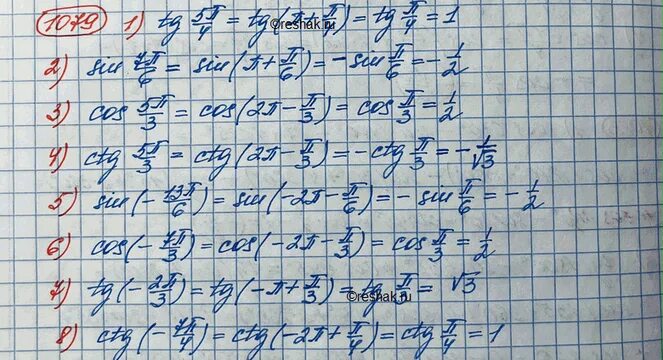 1079 1) tg 5π/4 = tg(π+π/4) = tg π/4 = 1
©reshak.ru
2) sin 7π/6 = sin(π+π/6) = -sin π/6 = -1/2
3) cos 5π/3 = cos(2π-π/3) = cos π/3 = 1/2
4) ctg 5π/3 = ctg(2π-π/3) = -ctg π/3 = -1/√3
5) sin(-13π/6) = sin(-2π-π/6) = -sin π/6 = -1/2
6) cos(-7π/3) = cos(-2π-π/3) = cos π/3 = 1/2
7) tg(-2π/3) = tg(-π+π/3) = tg π/3 = √3
©reshak.ru
8) ctg(-7π/4) = ctg(-2π+π/4) = ctg π/4 = 1